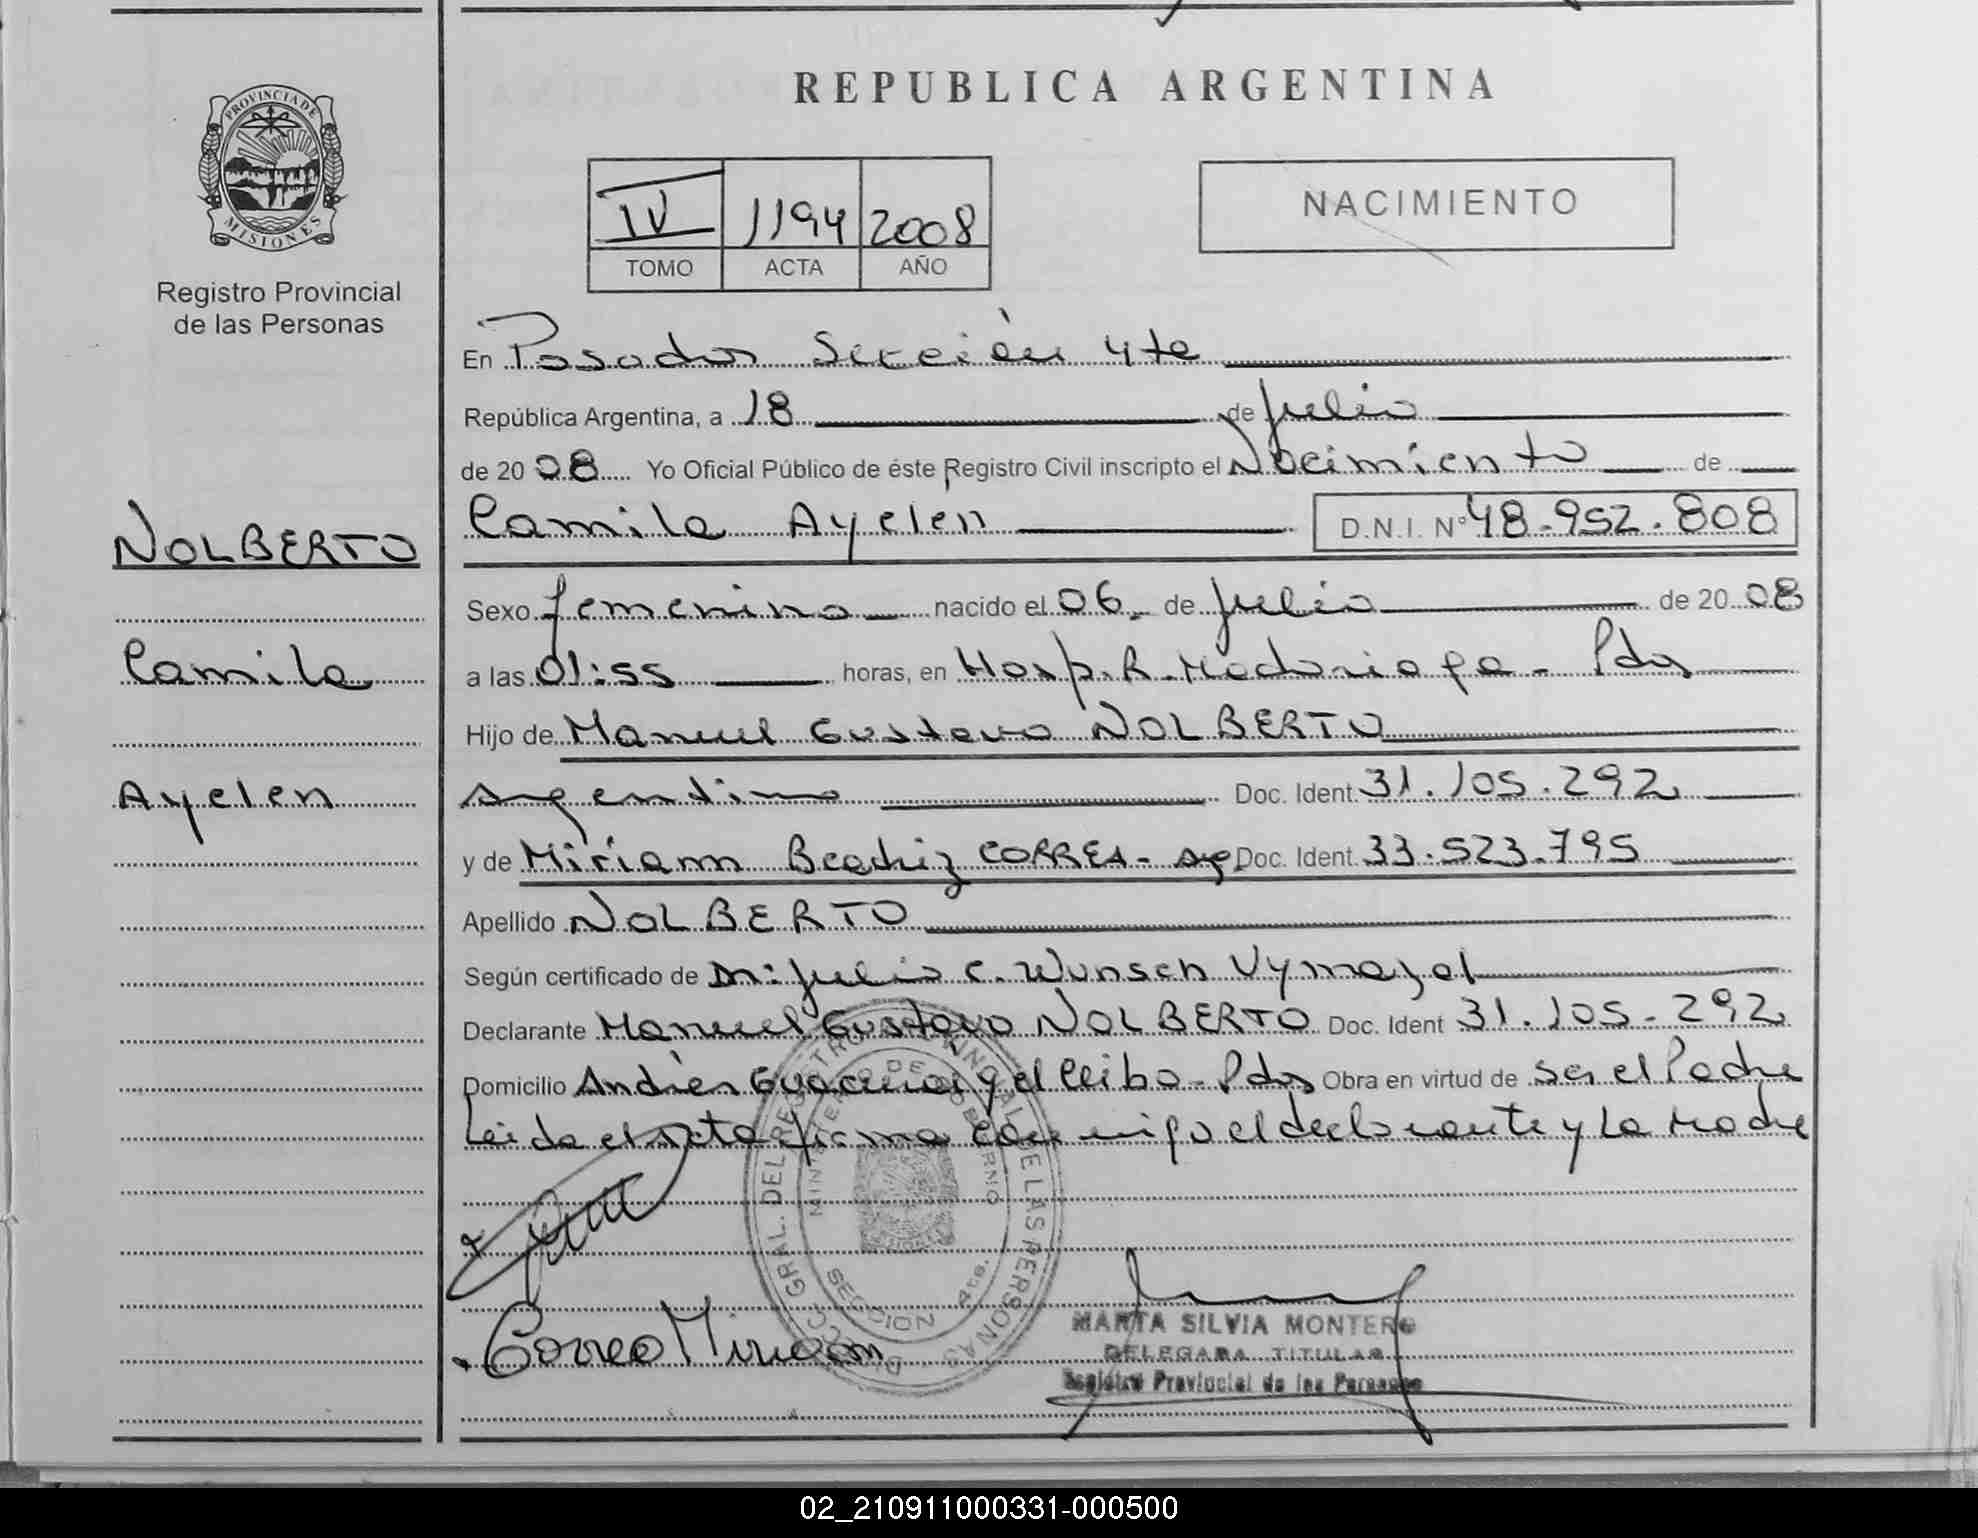 REPUBLICA ARGENTINA
PROVINCIA DE
MISIONES
Registro Provincial
de las Personas
IV 1194 2008
TOMO ACTA AÑO
NACIMIENTO
En Posadas Sección 4ta
República Argentina, a 18 de Julio
de 2008 Yo Oficial Público de éste Registro Civil inscripto el Nacimiento de
NOLBERTO
Camila
Ayelen
Camila Ayelen D.N.I. Nº 48.952.808
Sexo femenino nacido el 06 de Julio de 2008
a las 01:55 horas, en Hosp. R. Madariaga - Pdas
Hijo de Manuel Gustavo NOLBERTO
argentino Doc. Ident. 31.105.292
y de Miriam Beatriz CORREA - arg Doc. Ident. 33.523.795
Apellido NOLBERTO
Según certificado de Dr: Julio C. Wunsch Vymazal
Declarante Manuel Gustavo NOLBERTO Doc. Ident 31.105.292
Domicilio Andrés Guacurarí y el Ceibo - Pdas Obra en virtud de ser el Padre
Leida el acta firma conmigo el declarante y La Madre
DIRECC. GRAL. DEL REGISTRO PROVINCIAL DE LAS PERSONAS
MINISTERIO DE GOBIERNO
SECCION 4ta.
Correa Miriam
MARTA SILVIA MONTERO
DELEGADA TITULAR
Registro Provincial de las Personas
02_210911000331-000500